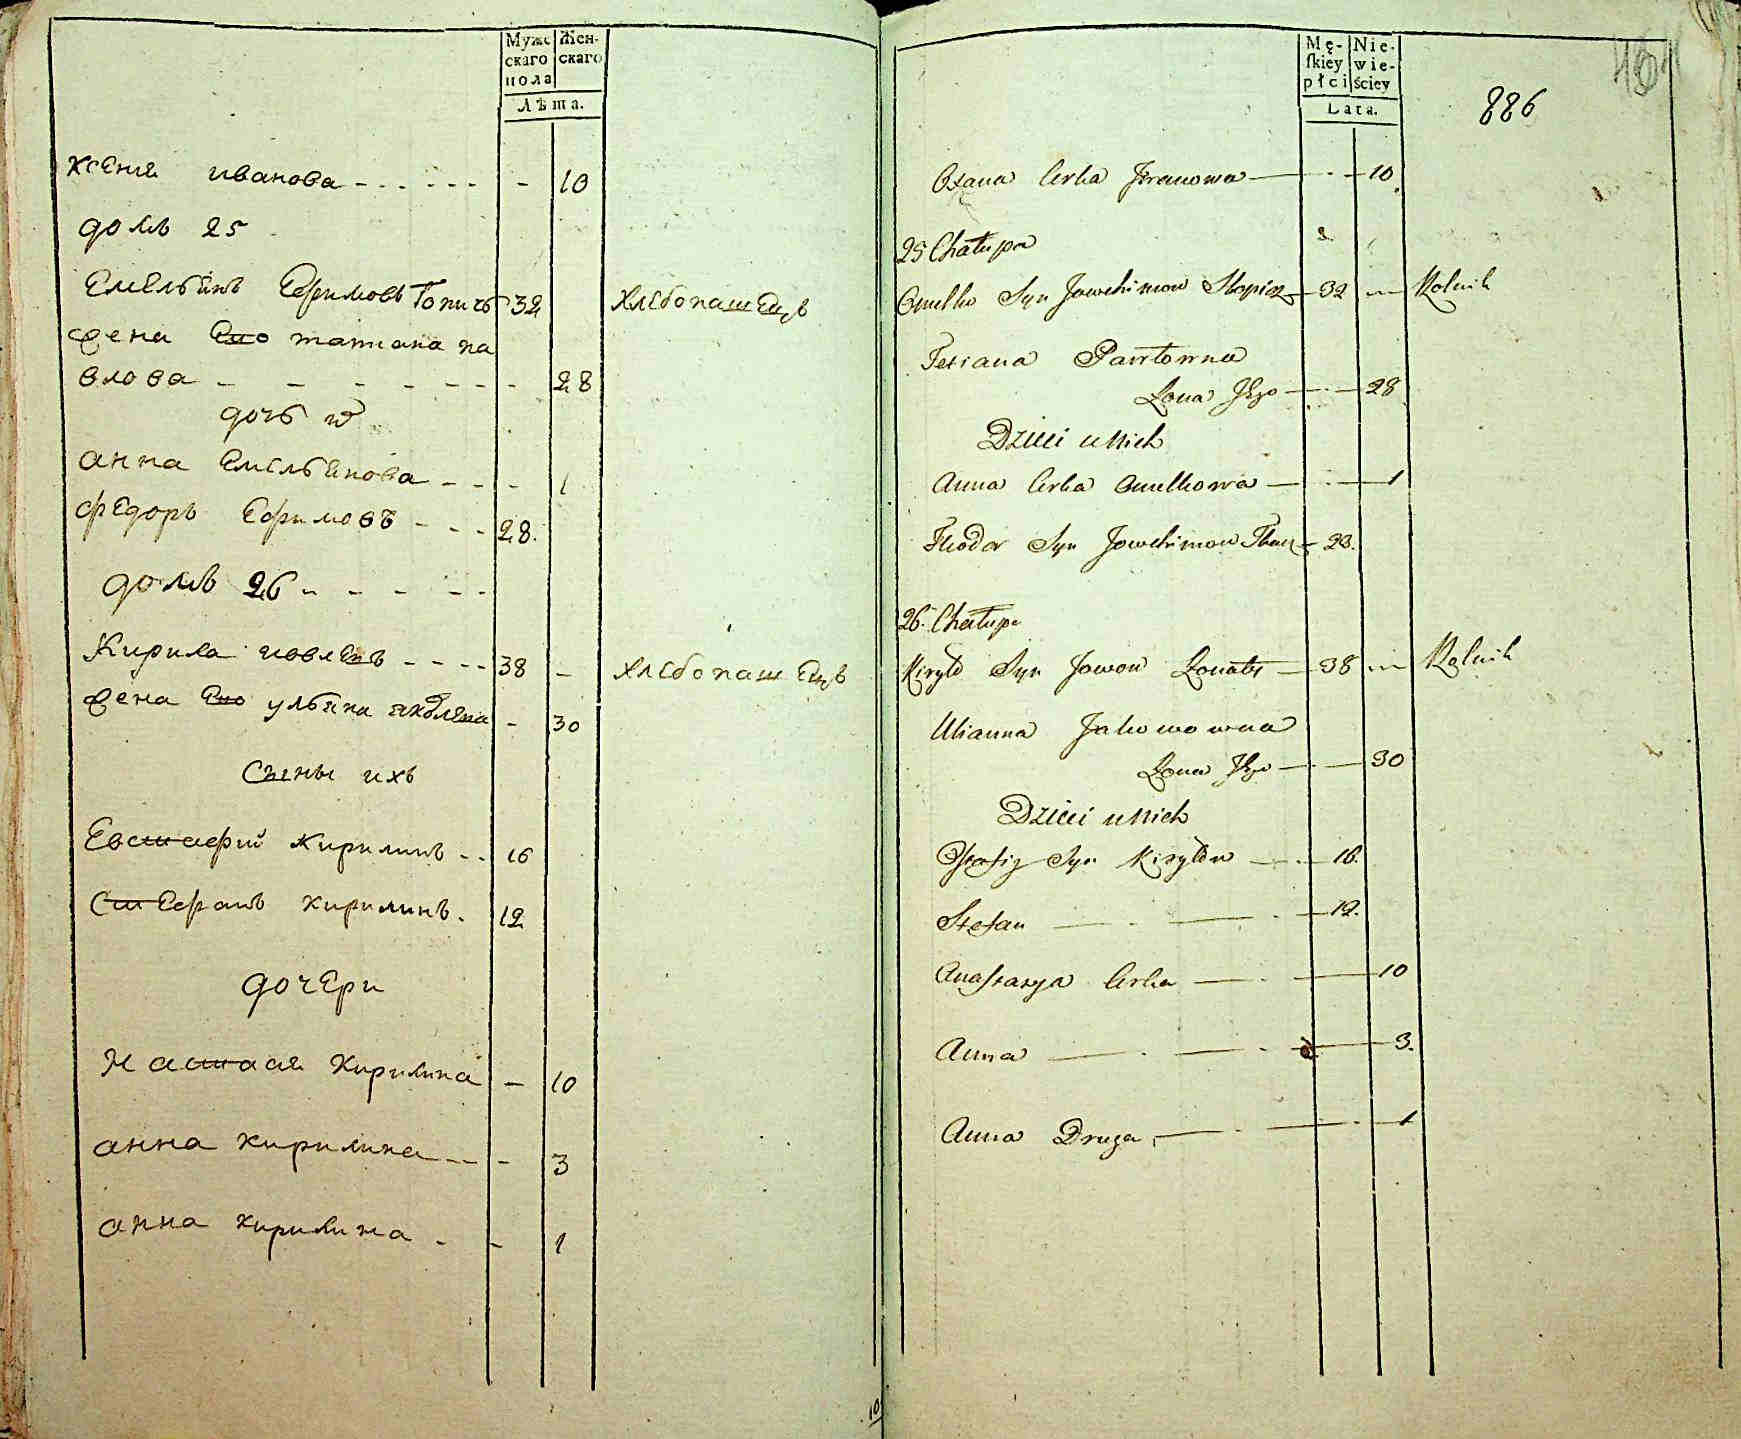 Муже скаго пола
Жен- скаго
Лѣта.
ксения иванова - - - - - - - 10
домъ 25
Емельянъ Ефимовъ Топичъ 32 хлебопашецъ
жена Его татиана па
влова - - - - - - - 28
дочь
анна Емельянова - - - 1
федоръ Ефимовъ - - - 28.
домъ 26 - - - - -
Кирила иовлевъ - - - - 38 - хлебопашецъ
жена Его ульяна яковлева - 30
Сыны ихъ
Евстафий Кирилинъ - - 16
Стефанъ кирилинъ. 12
дочери
Настася Кирилина - 10
анна кирилина - - - 3
анна кирилина - - 1
10
Mę- skiey płci
Nie- wie- ściey
Lata.
886
Oxana Corka Jwanowa - 10.
25 Chałupa
Omelko Syn Jowchimow 32 Rolnik
Tetiana Pawłowna
Żona Jego - 28
Dzieci u Nich
Anna Corka Omelkowa - 1
Theodor Syn Jowchimow - 28.
26. Chałupa
Kiryło Syn Jowow - 38 Rolnik
Ulianna Jakowowna
Żona Jego - 30
Dzieci u Nich
Syn Kiryłow - 16.
Stefan - 12.
Anastazya Corka - 10
Anna - 3.
Anna Druga, - 1